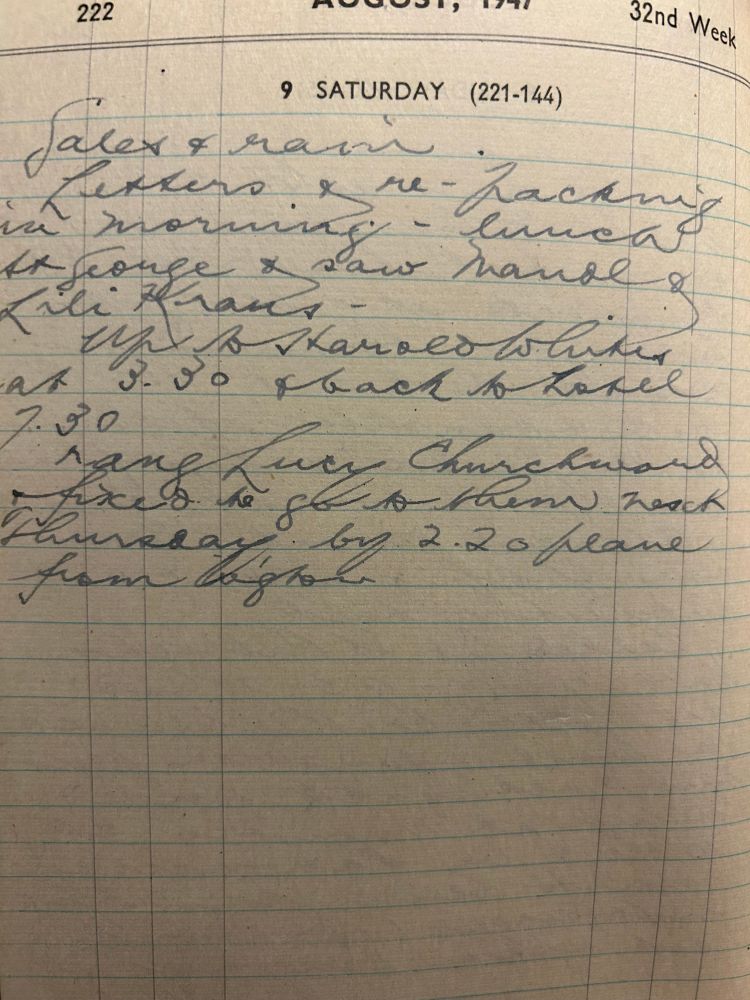 222 AUGUST, 1947 32nd Week
9 SATURDAY (221-144)
Gales & rain.
Letters & re-packing
in morning - lunch
St George & saw Maude &
Lili Kraus -
Up to Harold Whites
at 3.30 & back to Hotel
7.30
rang Lucy Churchward
& fixed to go to them next
Thursday by 2.20 plane
from W'gton